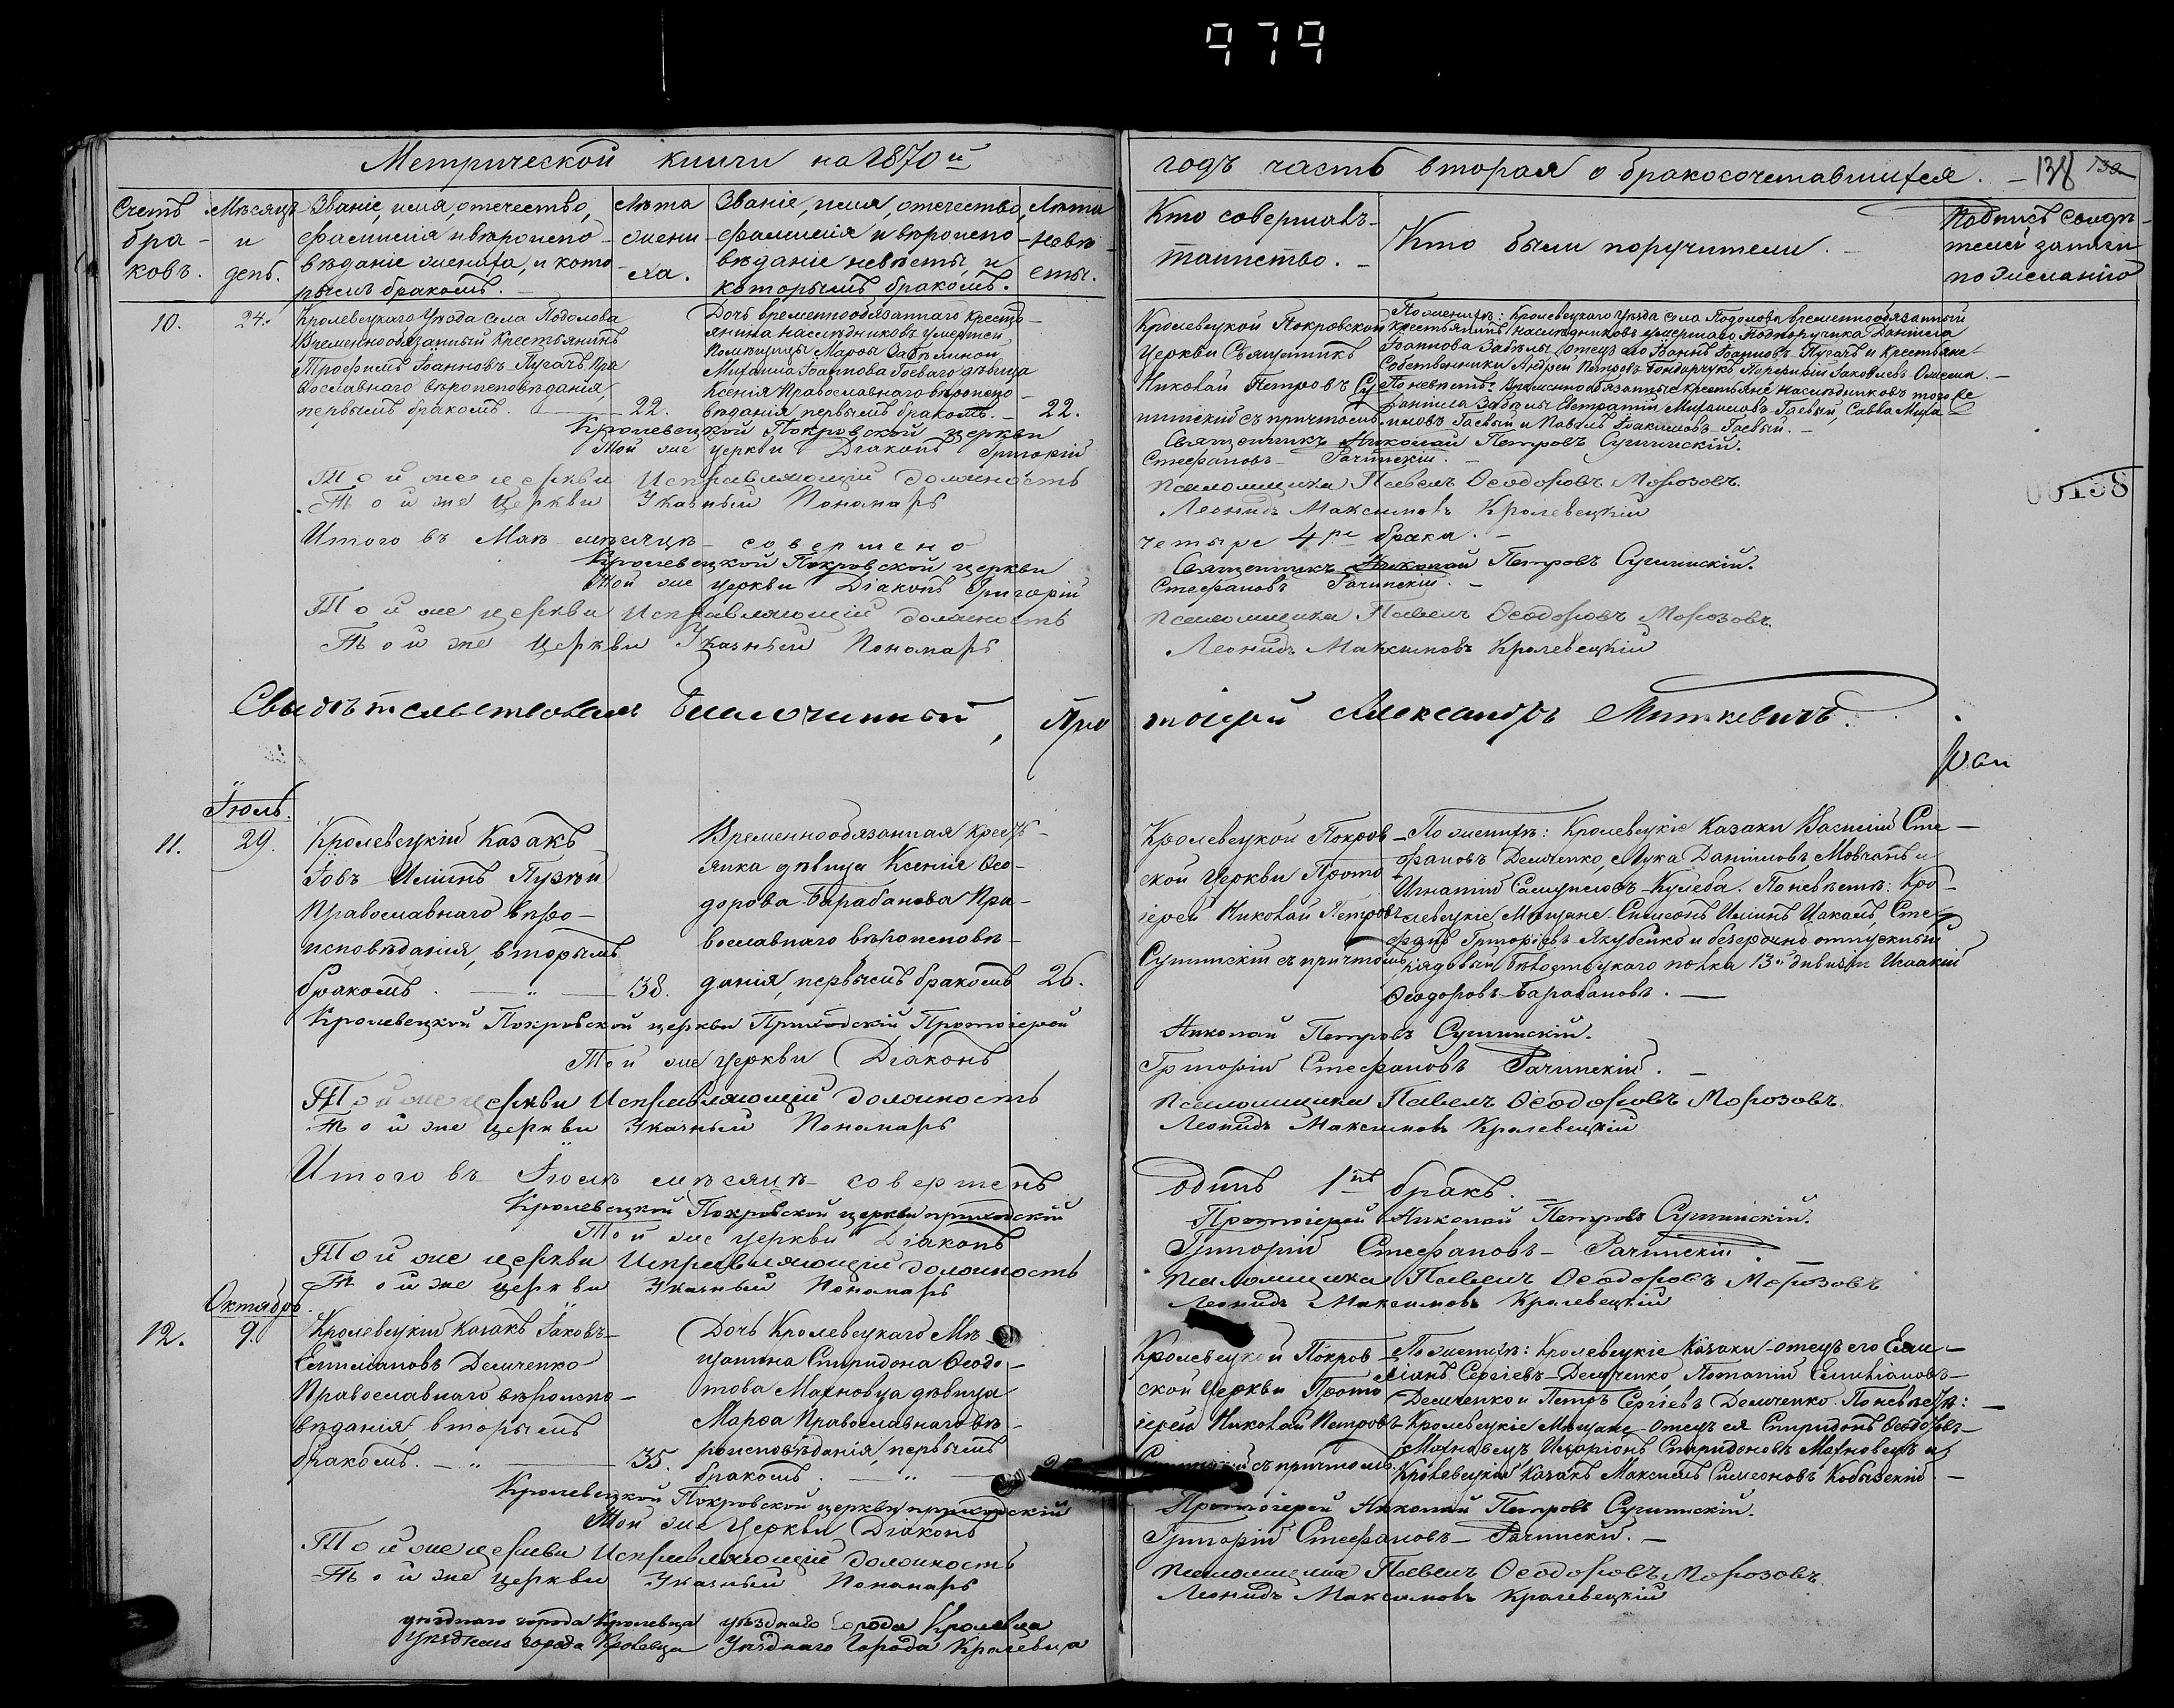 979
Метрической книги на 1870й
годъ часть вторая о бракосочетавшихся. – 138
Счетъ бра-ковъ.
Мѣсяцъ и день.
Званіе, имя, отечество,
фамилія и вѣроиспо-
вѣданіе жениха, и кото-
рымъ бракомъ. –
Лѣта жени-ха.
Званіе, имя, отечество,
фамилія и вѣроиспо-
вѣданіе невѣсты, и
которымъ бракомъ.
Лѣта невѣ-сты.
Кто совершалъ
таинство. –
Кто были поручители. –
Подпись свидѣ-
телей записи
по желанію
10.
24.
Кролевецкаго Уѣзда села Подолова
Временнообязанный Крестьянинъ
Трофимъ Іоанновъ Пугачъ Пра-
вославнаго вѣроисповѣданія,
первымъ бракомъ. 22.
Дочь временнообязаннаго крестъ-
янина наслѣдниковъ умершей
Помѣщицы Марѳы Забѣлиной
Михаила Іоаннова Гоеваго дѣвица
Ксенія Православнаго вѣроиспо-
вѣданія первымъ бракомъ. – 22.
Кролевецкой Покровской
Церкви Священникъ
Николай Петровъ Су-
шинскій съ причтомъ
По женихѣ: Кролевецкаго уѣзда села Подолова временнообязанный
крестьянинъ наслѣдниковъ умершаго Подпоручика Даніила
Іоаннова Забѣлы отецъ его Іоаннъ Іоанновъ Пугачъ и Крестьяне
Собственники Андрей Петровъ Бондарчукъ Порфирій Іаковлевъ
По невѣстѣ: Временнообязанные крестьяне наслѣдниковъ того же
Даніила Забѣлы Евстратій Михаиловъ Гоевый, Савва Миха-
иловъ Гоевый и Павелъ Іоакимовъ Гоевый. –
Кролевецкой Покровской церкви Священникъ Николай Петровъ Сушинскій.
Той же церкви Діаконъ Григорій Стефановъ Рачинскій. –
Той же церкви Исправляющій должность псаломщика Павелъ Ѳеодоровъ Морозовъ.
Той же Церкви Указный Пономарь Леонидъ Максимовъ Кролевецкій
00138
Итого въ Маѣ мѣсяцѣ совершено четыре 4ре брака. –
Кролевецкой Покровской церкви Священникъ Николай Петровъ Сушинскій.
Той же церкви Діаконъ Григорій Стефановъ Рачинскій. –
Той же церкви Исправляющій должность псаломщика Павелъ Ѳеодоровъ Морозовъ.
Той же Церкви Указный Пономарь Леонидъ Максимовъ Кролевецкій
Свидѣтельствовалъ Благочинный, Протоіерей Александръ Миткевичъ.
Іюль.
11.
29.
Кролевецкій Казакъ
Іовъ Ильинъ Пузѣй
Православнаго вѣро-
исповѣданія, вторымъ
бракомъ. – „ – 38.
Временнообязанная Кресть-
янка дѣвица Ксенія Ѳео-
дорова Барабанова Пра-
вославнаго вѣроисповѣ-
данія, первымъ бракомъ 26.
Кролевецкой Покров-
ской Церкви Прото-
іерей Николай Петровъ
Сушинскій съ причтомъ
По женихѣ: Кролевецкіе Казаки Василій Сте-
фановъ Демченко, Лука Даніиловъ Мовчанъ и
Игнатій Самуиловъ Кулеба. По невѣстѣ: Кро-
левецкіе Мѣщане Симеонъ Ильинъ Цакалъ, Сте-
фанъ Григоріевъ Якубенко и безсрочно отпускный
рядовый Бѣлостоцкаго полка 13й дивизіи Исаакій
Ѳеодоровъ Барабановъ. –
Кролевецкой Покровской церкви Приходскій Протоіерей Николай Петровъ Сушинскій.
Той же церкви Діаконъ Григорій Стефановъ Рачинскій. –
Той же церкви Исправляющій должность псаломщика Павелъ Ѳеодоровъ Морозовъ
Той же церкви Указный Пономарь Леонидъ Максимовъ Кролевецкій
Итого въ Іюлѣ мѣсяцѣ совершенъ одинъ 1нъ бракъ.
Кролевецкой Покровской церкви приходскій Протоіерей Николай Петровъ Сушинскій.
Той же церкви Діаконъ Григорій Стефановъ Рачинскій.
Той же церкви Исправляющій должность псаломщика Павелъ Ѳеодоровъ Морозовъ
Той же церкви Указный Пономарь Леонидъ Максимовъ Кролевецкій
Октябрь.
12.
9.
Кролевецкій Казакъ Іаковъ
Емиліановъ Демченко
Православнаго вѣроиспо-
вѣданія, вторымъ
бракомъ. – „ – 35.
Дочь Кролевецкаго Мѣ-
щанина Спиридона Ѳеодо-
това Махновца дѣвица
Марѳа Православнаго вѣ-
роисповѣданія, первымъ
бракомъ. – „ –
Кролевецкой Покров-
ской Церкви Прото-
іерей Николай Петровъ
Сушинскій съ причтомъ
По женихѣ: Кролевецкіе Казаки отецъ его Еми-
ліанъ Сергіевъ Демченко, Потапій Емиліановъ
Демченко и Петръ Сергіевъ Демченко. По невѣстѣ:
Кролевецкіе Мѣщане отецъ ея Спиридонъ Ѳеодотовъ
Махновецъ Иларіонъ Спиридоновъ Махновецъ и
Кролевецкій Казакъ Максимъ Симеоновъ Кобызскій. –
Кролевецкой Покровской церкви приходскій Протоіерей Николай Петровъ Сушинскій.
Той же Церкви Діаконъ Григорій Стефановъ Рачинскій. –
Той же церкви Исправляющій должность псаломщика Павелъ Ѳеодоровъ Морозовъ
Той же церкви Указный Пономарь Леонидъ Максимовъ Кролевецкій
уѣзднаго города Кролевца уѣзднаго Города Кролевца
Уѣзднаго города Кролевца Уѣзднаго Города Кролевца